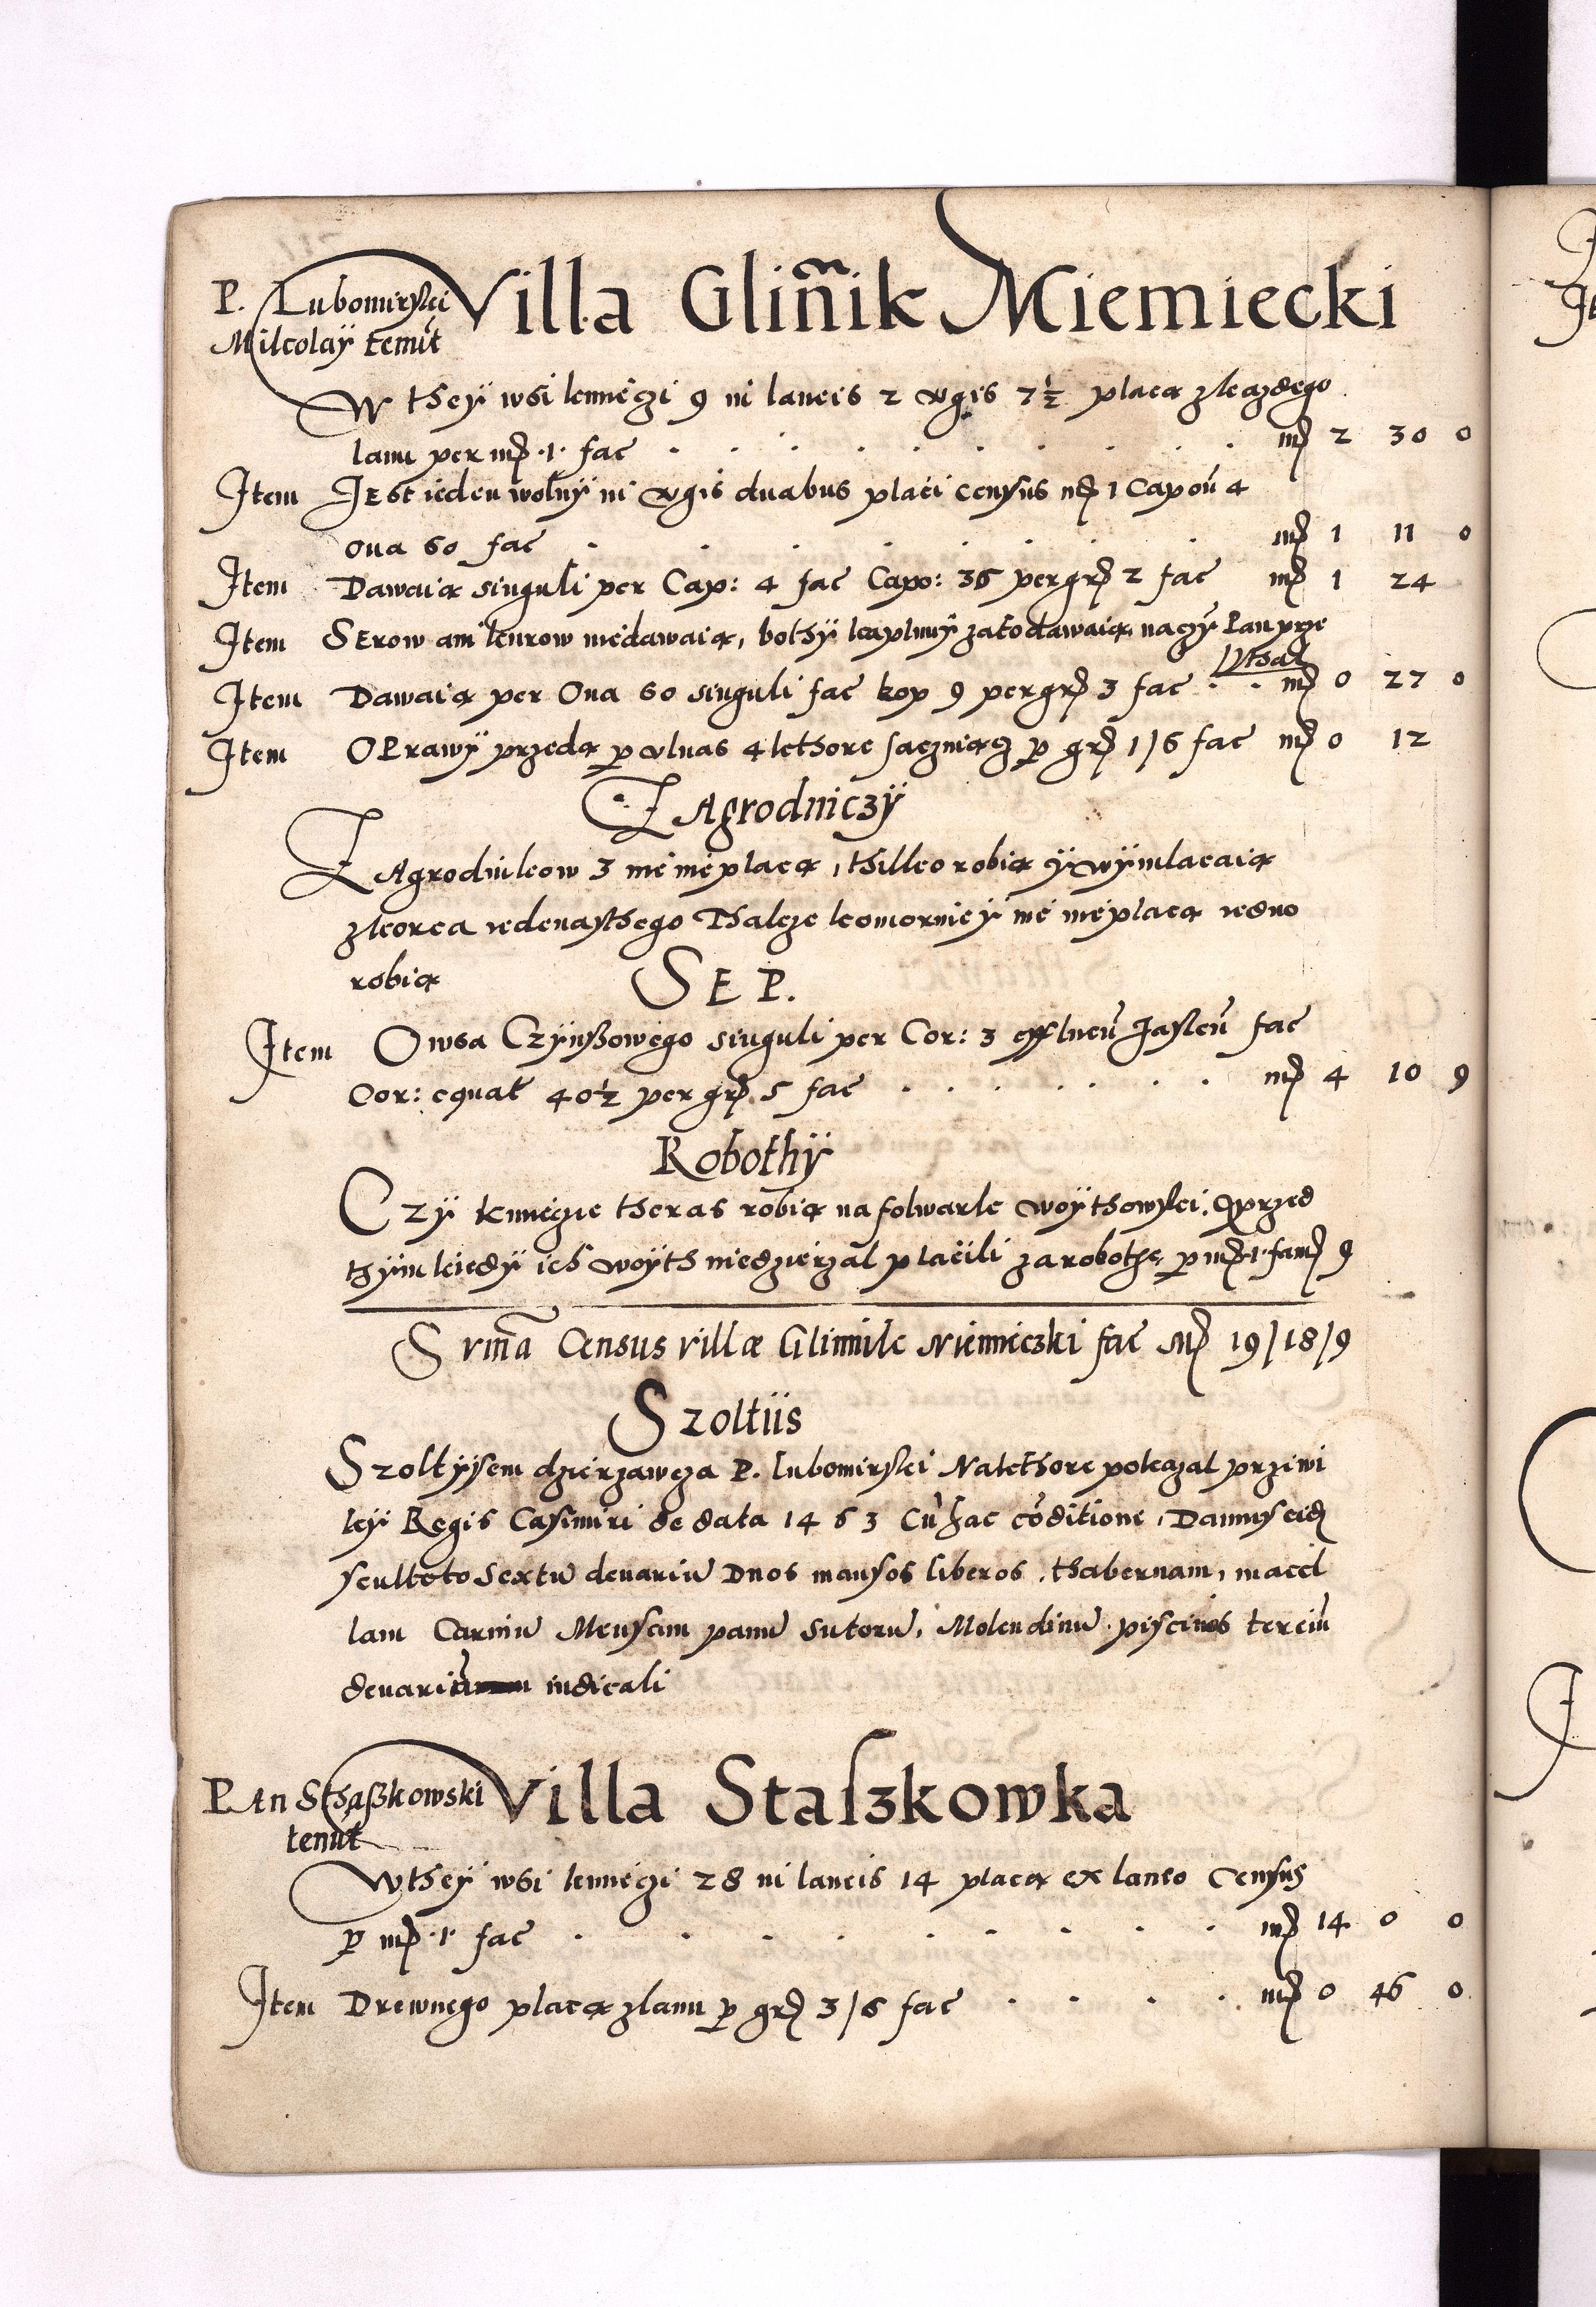 P. Lubomirski
Mikolaÿ tenut
Villa Gliñik Miemiecki
W theÿ wsi kmiéczi 9 in laneis 2 virgis 7½ placą zkazdego
lanu per mr̃ .1. fac . . . . . . . . . mr̃ 2 30 0
Item JEst ieden wolnÿ in virgis duabus placi census mr̃ 1 Capoñ 4
Oua 60 fac . . . . . . . . mr̃ 1 11 0
Item Dawaią singuli per Cap: 4 fac Capo: 36 per gr̃ 2 fac mr̃ 1 24
Item SErow ani kurow niédawaią, bothÿ kapłunÿ zato dawaią, naczÿ Pan prze
sthał
Item Dawaią per Oua 60 singuli fac kop 9 per gr̃ 3 fac . . mr̃ 0 27 0
Item OPrawÿ przedą p ulnas 4 kthore saczuią p gr̃ 1/6 fac mr̃ 0 12
ZAgrodniczÿ
ZAgrodnikow 3 nié niéplacą, thilko robią ÿ wÿmlacaią
zkorca iedenasthego Thakze komornicÿ nié niéplacą iedno
robią
SEP.
Item Owsa Czÿnßowégo singuli per Cor: 3 Jasleñ fac
Cor: equat 40½ per gr̃ 5 fac . . . . . . . mr̃ 4 10 9
Robothÿ
Czÿ kmiéczie theras robią na folwark woÿthowskí. A przed
thÿm kiedÿ ich woÿth niedzierzał placili za robothę p mr̃ .1. fa mr̃ 9
Sum̃a Census villæ Glinnik Niemieczki fac Mr̃ 19/18/9
Szoltiis
Szoltÿsem dzierzawcza P. Lubomirski Nakthore pokazal prziwi
leÿ Regis Casimiri de data 1463 Cũ hac cõditione, Damus eidẽ
sculteto Sextũ denariũ Duos mansos liberos, thabernam, macel
lam Carniũ Mensam panũ sutorũ, Molendinũ piscinas terciũ
denariũ iudicali
PAn Sthaßkowski
tenut
Villa Staſzkowka
Wtheÿ wsi kmiéczi 28 in laneis 14 placą ex laneo Census
p mr̃ .1. fac . . . . . . . . mr̃ 14 0 0
Item Drewnego placą zlanu p gr̃ 3/6 fac . . . . mr̃ 0 46 0